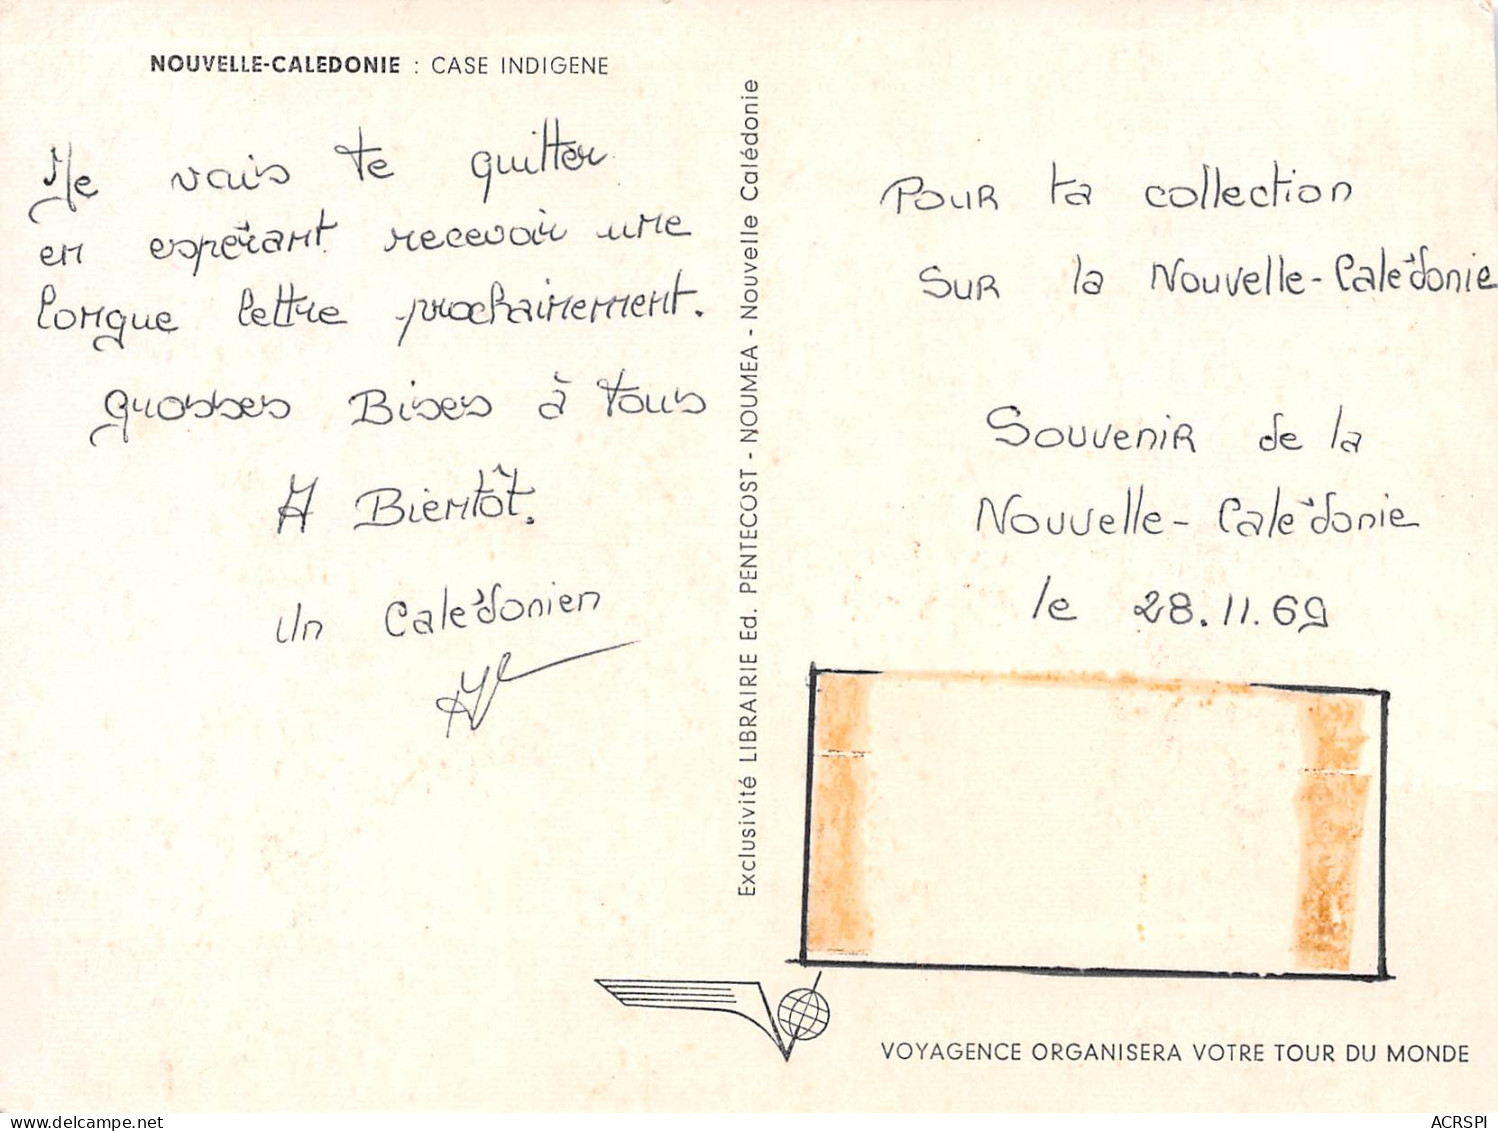 NOUVELLE-CALEDONIE : CASE INDIGENE
Je vais te quitter
en espérant recevoir une
longue lettre prochainement.
grosses Bises à tous
A Bientôt.
Un Calédonien
Exclusivité LIBRAIRIE Ed. PENTECOST - NOUMEA - Nouvelle Calédonie
POUR ta collection
SUR la Nouvelle-Calédonie
Souvenir de la
Nouvelle-Calédonie
le 28.11.69
VOYAGENCE ORGANISERA VOTRE TOUR DU MONDE
ACRSPI